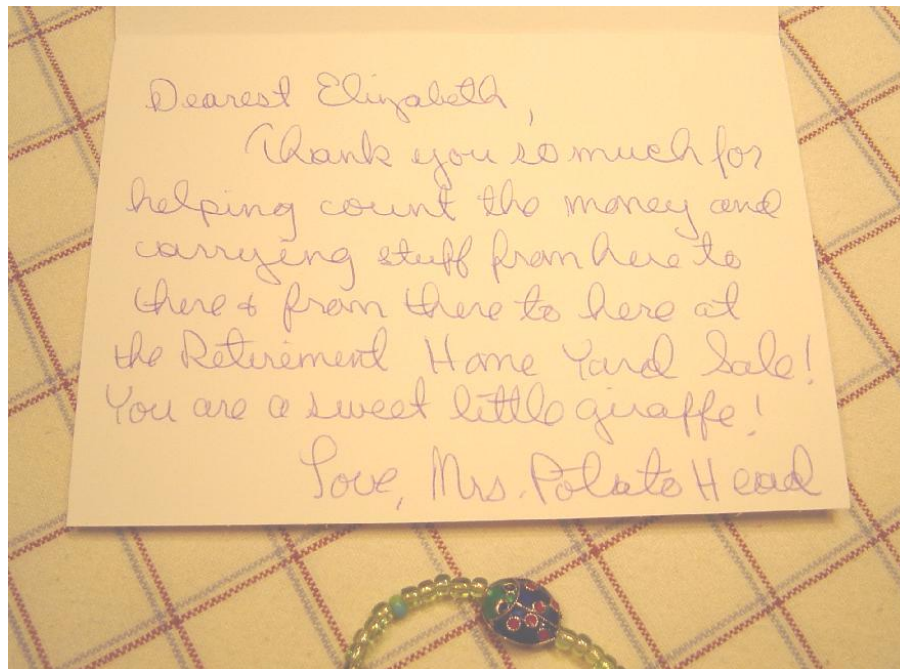 Dearest Elizabeth,
Thank you so much for
helping count the money and
carrying stuff from here to
there & from there to here at
the Retirement Home Yard Sale!
You are a sweet little giraffe!
Love, Mrs. Potato Head